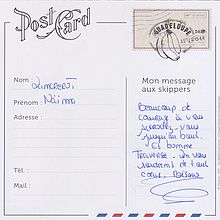 Post Card
GUADELOUPE
Nom :
Prénom : Naïma
Adresse :
Mon message
aux skippers
Beaucoup de
courage à vous
jusqu'au bout.
Et bonne
Traversée. On vous
soutient de tout
coeur. Bisous
Tél. :
Mail :